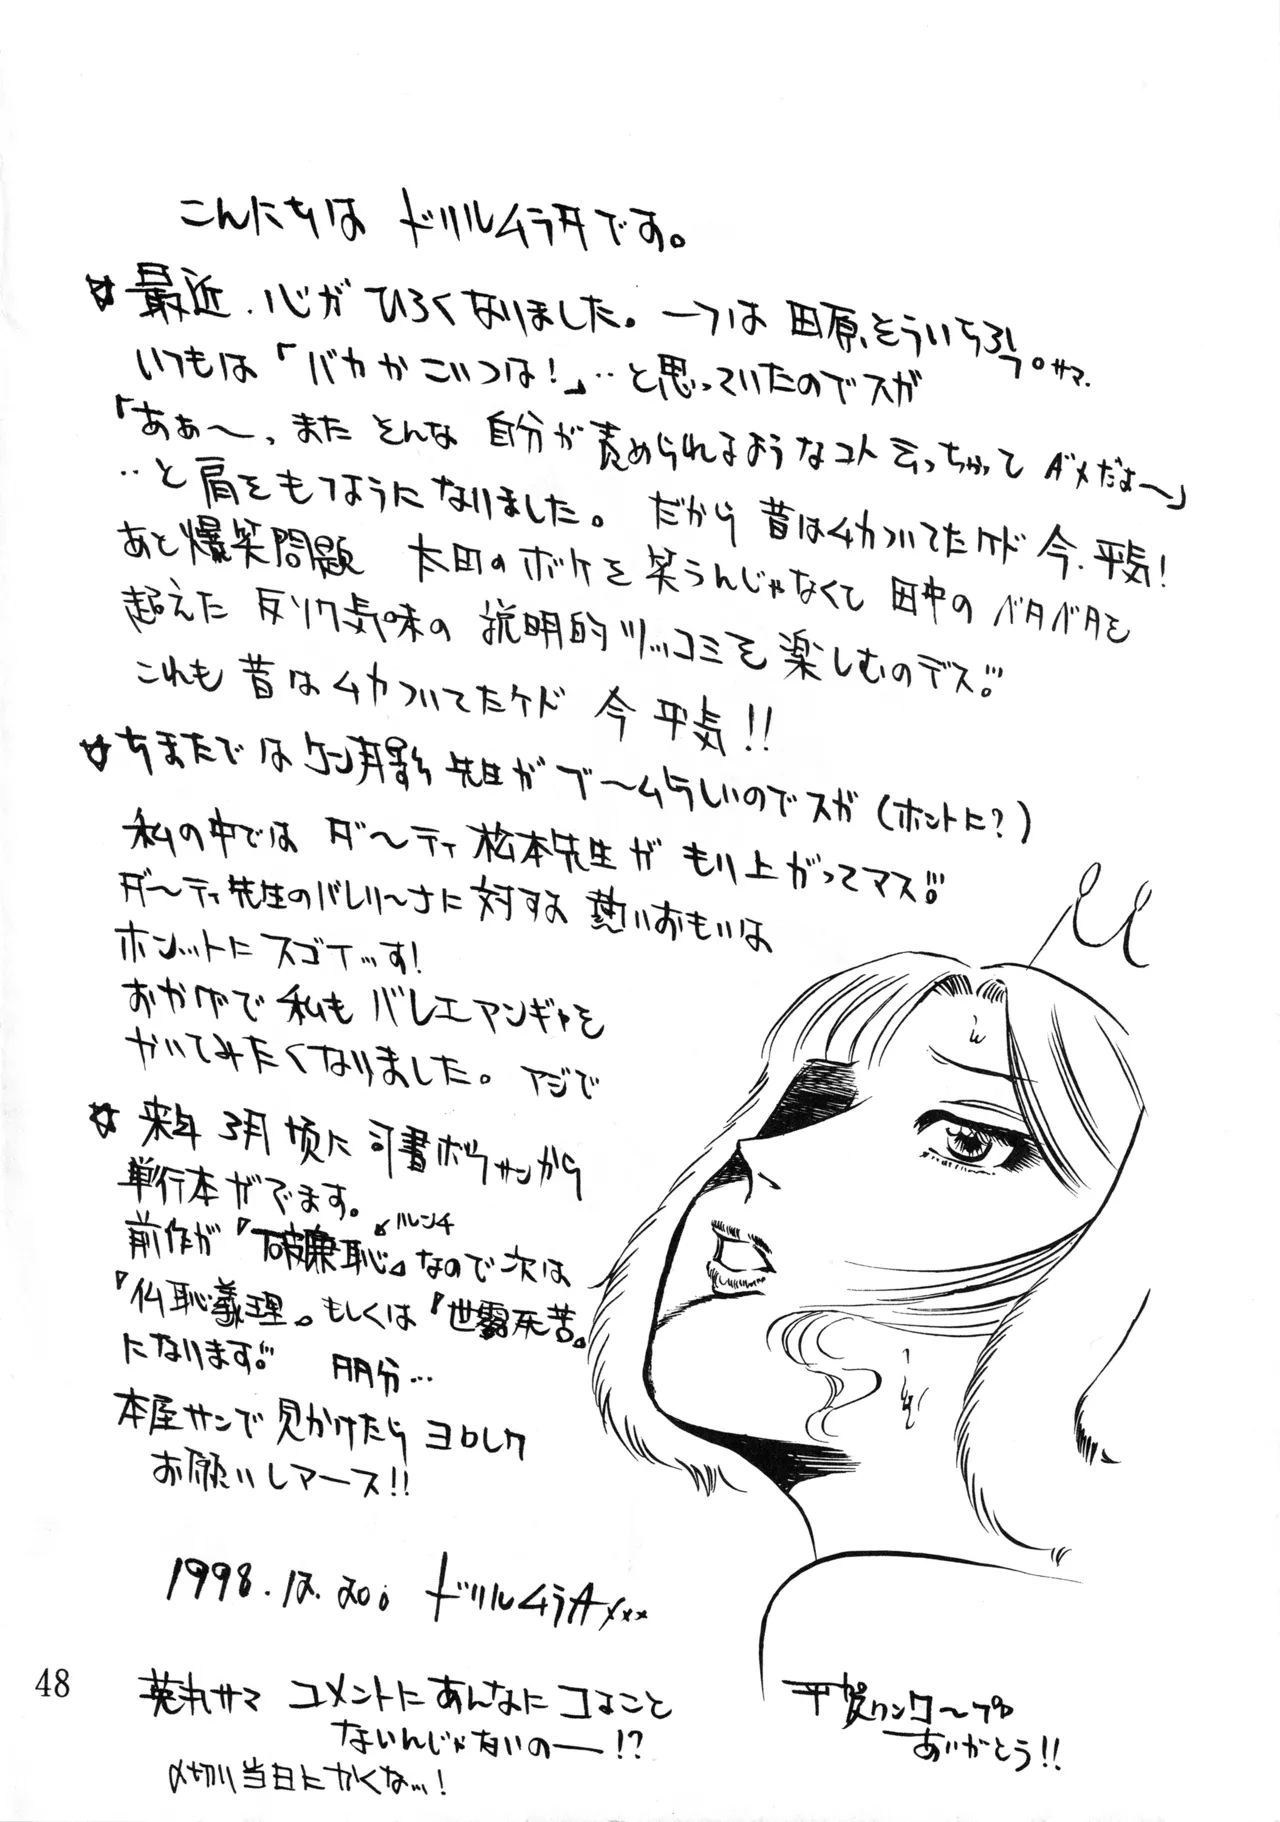 こんにちは ドリルムラタです。
☆最近、心がひろくなりました。一つは 田原そういちろうサマ。
いつもは「バカかこいつは!」‥と思っていたのでスガ
「あぁ〜、また そんな 自分が責められるようなコト云っちゃって ダメだよ〜」
‥と肩をもつようになりました。 だから 昔はムカついてたケド 今、平気!
あと爆笑問題 太田のボケを笑うんじゃなくて 田中の ベタベタを
超えた 反ソク気味の 説明的ツッコミを 楽しむのデス!!
これも 昔は ムカついてたケド 今 平気!!
☆ちまたでは ケン月影先生がブームらしいのでスガ(ホントに?)
私の中では ダ〜ティ松本先生が もり上がってマス!!
ダ〜ティ先生のバレリ〜ナに 対する 熱いおもいは
ホンットに スゴイッす!
おかげで 私も バレエマンガを
かいてみたくなりました。 マジで
☆来年 3月頃に 司書ボウサンから
単行本がでます。
ハレンチ
前作が『破廉恥』なので 次は
『仏恥義理』もしくは『世露死苦』
になります!! 多分…
本屋サンで 見かけたら ヨロシク
お願いしマース!!
1998.12.20。 ドリルムラタ xxx
サマ コメントに あんなに コマること
ないんじゃないのー!?
〆切り当日にかくな…!
平賀ワンワ〜プ
ありがとう!!
48